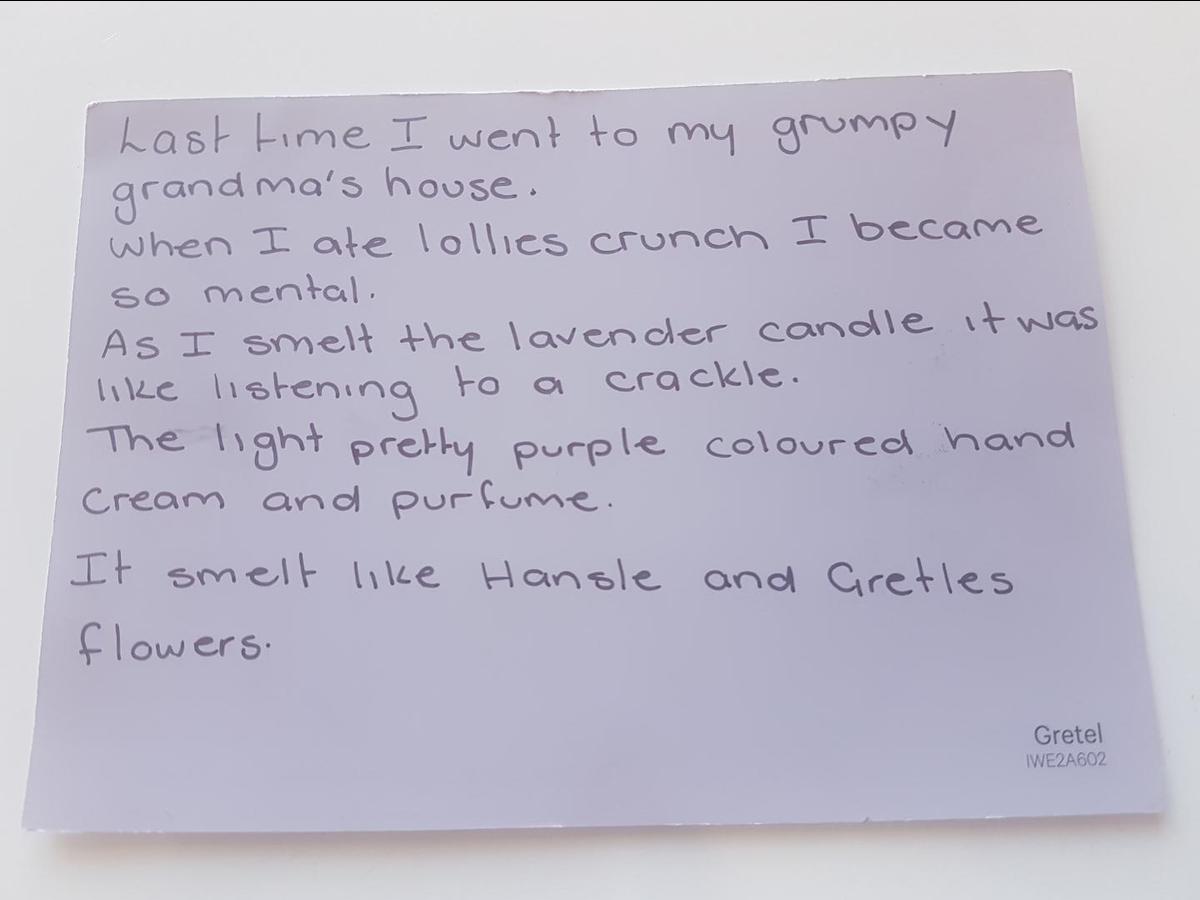 Last time I went to my grumpy
grandma's house.
when I ate lollies crunch I became
so mental.
As I smelt the lavender candle it was
like listening to a crackle.
The light pretty purple coloured hand
cream and purfume.
It smelt like Hansle and Gretles
flowers.
Gretel
IWE2A602